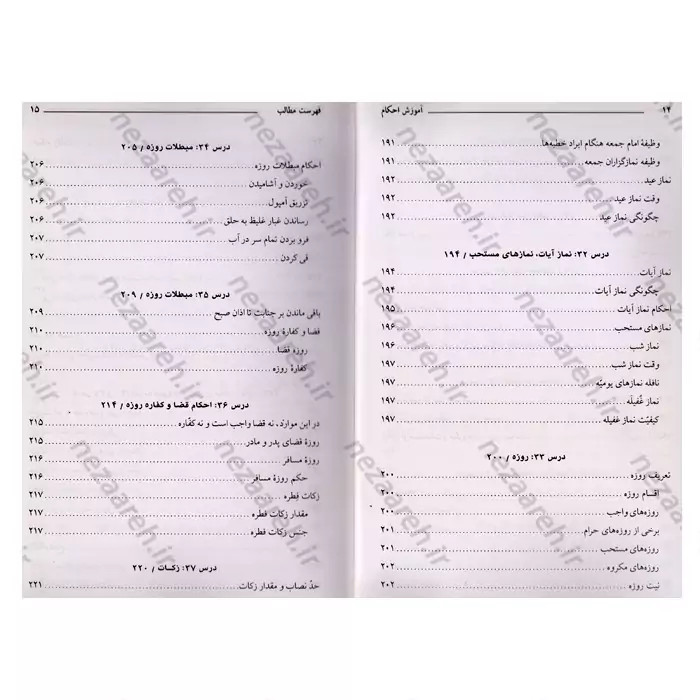 ۱۴ آموزش احکام
وظیفهٔ امام جمعه هنگام ایراد خطبه‌ها ۱۹۱
وظیفه نمازگزاران جمعه ۱۹۱
نماز عید ۱۹۲
وقت نماز عید ۱۹۲
چگونگی نماز عید ۱۹۲
درس ۳۲: نماز آیات، نمازهای مستحب / ۱۹۴
نماز آیات ۱۹۴
چگونگی نماز آیات ۱۹۴
احکام نماز آیات ۱۹۵
نمازهای مستحب ۱۹۶
نماز شب ۱۹۶
وقت نماز شب ۱۹۷
نافله نمازهای یومیّه ۱۹۷
نماز غُفیله ۱۹۷
کیفیّت نماز غفیله ۱۹۷
درس ۳۳: روزه / ۲۰۰
تعریف روزه ۲۰۰
اقسام روزه ۲۰۰
روزه‌های واجب ۲۰۰
برخی از روزه‌های حرام ۲۰۱
روزه‌های مستحب ۲۰۱
روزه‌های مکروه ۲۰۲
نیت روزه ۲۰۲
فهرست مطالب ۱۵
درس ۳۴: مبطلات روزه / ۲۰۵
احکام مبطلات روزه ۲۰۶
خوردن و آشامیدن ۲۰۶
تزریق آمپول ۲۰۶
رساندن غبار غلیظ به حلق ۲۰۶
فرو بردن تمام سر در آب ۲۰۷
قی کردن ۲۰۷
درس ۳۵: مبطلات روزه / ۲۰۹
باقی ماندن بر جنابت تا اذان صبح ۲۰۹
قضا و کفاره روزه ۲۱۰
روزه قضا ۲۱۰
کفارهٔ روزه ۲۱۰
درس ۳۶: احکام قضا و کفاره روزه / ۲۱۴
در این موارد، نه قضا واجب است و نه کفّاره ۲۱۵
روزهٔ قضای پدر و مادر ۲۱۵
روزهٔ مسافر ۲۱۶
حکم روزهٔ مسافر ۲۱۶
زکات فطره ۲۱۷
مقدار زکات فطره ۲۱۷
جنس زکات فطره ۲۱۷
درس ۳۷: زکات / ۲۲۰
حدّ نصاب و مقدار زکات ۲۲۱
nezaareh.ir
nezaareh.ir
nezaareh.ir
nezaareh.ir
nezaareh.ir
nezaareh.ir
nezaareh.ir
nezaareh.ir
nezaareh.ir
nezaareh.ir